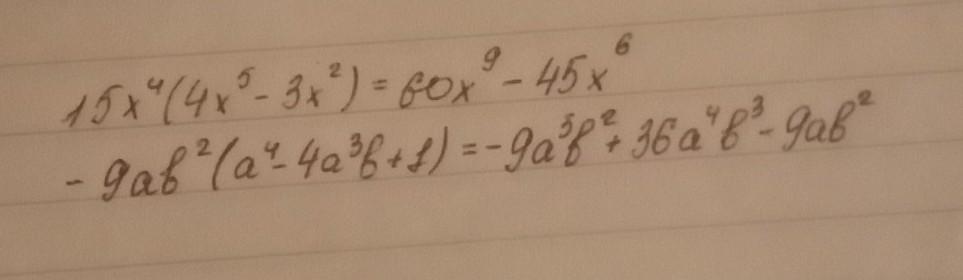 15x⁴(4x⁵ - 3x²) = 60x⁹ - 45x⁶
- 9ab²(a⁴ - 4a³b + 1) = - 9a⁵b² + 36a⁴b³ - 9ab²